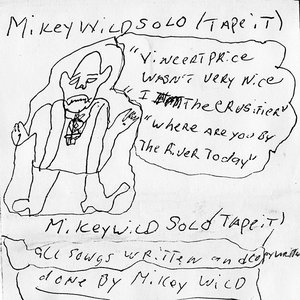 Mikey Wild Solo (Tape it)
"Vincert price
wasn't very nice
"I am the crusifier"
"Where are you by
the river today"
Mikey Wild Solo (Tape it)
all songs written and copywritten
done by Mikey Wild